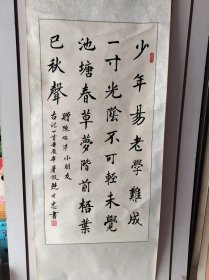 少年易老學難成
一寸光陰不可輕未覺
池塘春草夢階前梧葉
已秋聲
贈陳 小朋友
古詩一首 年暑假 書